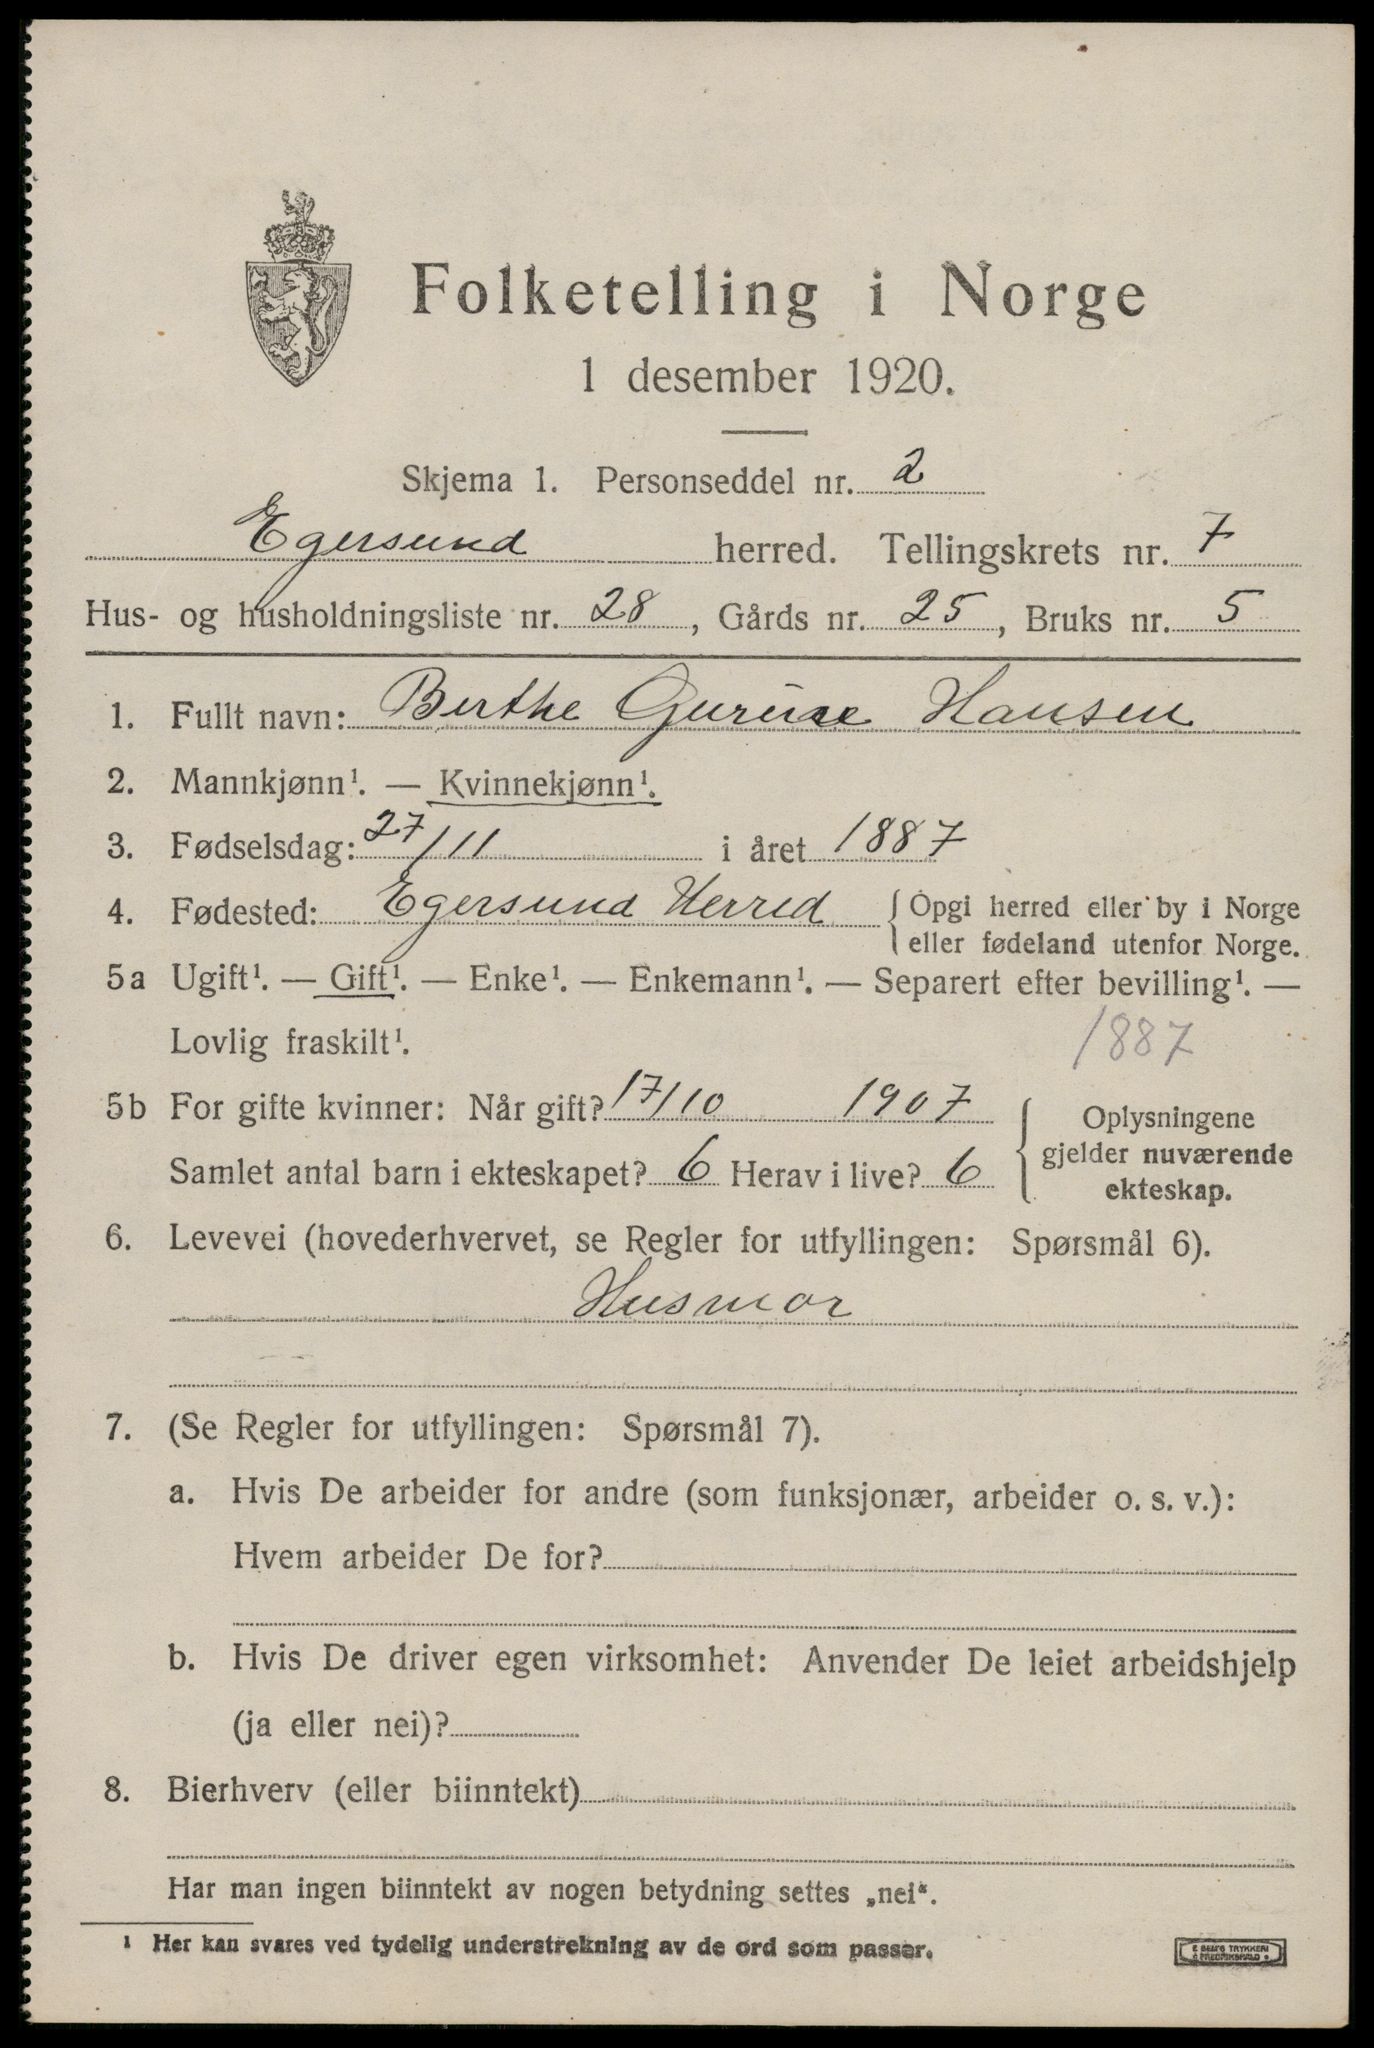 Folketelling i Norge
1 desember 1920.
Skjema 1. Personseddel nr. 2
Egersund herred. Tellingskrets nr. 7
Hus- og husholdningsliste nr. 28, Gårds nr. 25, Bruks nr. 5
1. Fullt navn: Berthe Gurine Hansen
2. Mannkjønn¹. — Kvinnekjønn¹.
3. Fødselsdag: 27/11 i året 1887
4. Fødested: Egersund Herred { Opgi herred eller by i Norge
eller fødeland utenfor Norge.
5a Ugift¹. — Gift¹. — Enke¹. — Enkemann¹. — Separert efter bevilling¹. —
Lovlig fraskilt¹. 1887
5b For gifte kvinner: Når gift? 17/10 1907
Samlet antal barn i ekteskapet? 6 Herav i live? 6
{ Oplysningene
gjelder nuværende
ekteskap.
6. Levevei (hovederhvervet, se Regler for utfyllingen: Spørsmål 6).
Husmor
7. (Se Regler for utfyllingen: Spørsmål 7).
a. Hvis De arbeider for andre (som funksjonær, arbeider o. s. v.):
Hvem arbeider De for?
b. Hvis De driver egen virksomhet: Anvender De leiet arbeidshjelp
(ja eller nei)?
8. Bierhverv (eller biinntekt)
Har man ingen biinntekt av nogen betydning settes „nei“.
¹ Her kan svares ved tydelig understrekning av de ord som passer.
E SEM'S TRYKKERI
FREDRIKSHALD